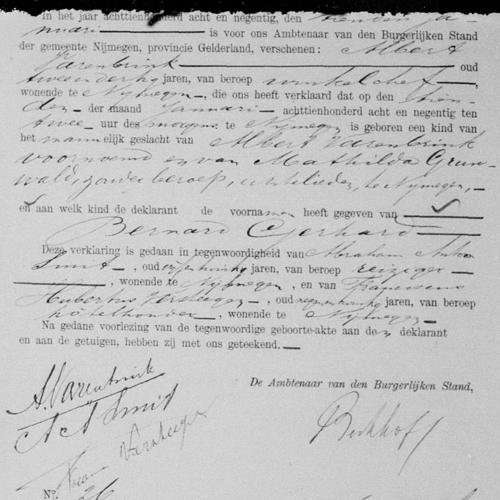 In het jaar achttienhonderd acht en negentig, den tienden Ja-
nuari is voor ons Ambtenaar van den Burgerlijken Stand
der gemeente Nijmegen, provincie Gelderland, verschenen: Albert
Varenbrink oud
twee en dertig jaren, van beroep winkelchef,
wonende te Nijmegen, die ons heeft verklaard dat op den tien-
den der maand Januari achttienhonderd acht en negentig ten
twee uur des morgens te Nijmegen is geboren een kind van
het mannelijk geslacht van Albert Varenbrink
voornoemd en van Mathilda Grun-
wald, zonder beroep, echtelieden, te Nijmegen,
en aan welk kind de deklarant de voornamen heeft gegeven van
Bernard Gerhard
Deze verklaring is gedaan in tegenwoordigheid van Abraham Antoon
Smit, oud jaren, van beroep reiziger
, wonende te Nijmegen, en van Franciscus
Hubertus Versteegen, oud jaren, van beroep
hôtelhouder, wonende te Nijmegen
Na gedane voorlezing van de tegenwoordige geboorte-akte aan den deklarant
en aan de getuigen, hebben zij met ons geteekend.
De Ambtenaar van den Burgerlijken Stand,
A. Varenbrink
A A Smit
Versteegen
No. 26